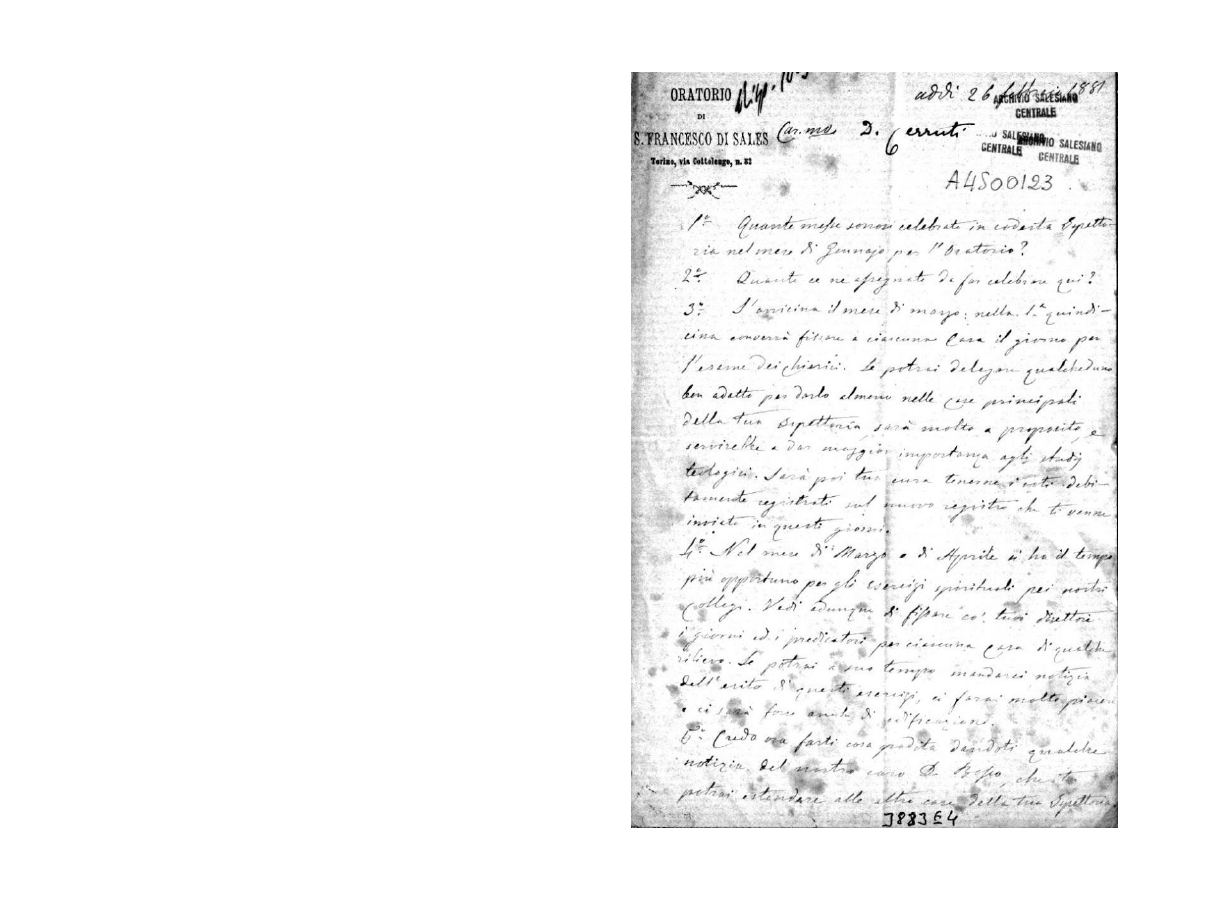 ORATORIO
DI
S. FRANCESCO DI SALES
Torino, via Cottolengo, n. 32
addì 26 febbraio 1881
ARCHIVIO SALESIANO
CENTRALE
SALESIANO
CENTRALE
ARCHIVIO SALESIANO
CENTRALE
Car.mo D. Cerruti
A4500123
1º Quante messe sonosi celebrate in codesta Ispetto-
ria nel mese di Gennajo per l'Oratorio?
2º Quante ce ne assegnate da far celebrare qui?
3º S'avvicina il mese di marzo: nella 1ª quindi-
cina converrà fissare a ciascuna Casa il giorno per
l'esame dei chierici. Se potrai delegare qualcheduno
ben adatto per darlo almeno nelle case principali
della tua Ispettoria, sarà molto a proposito, e
servirebbe a dar maggior importanza agli studj
teologici. Sarà poi tua cura tenerne i voti debi-
tamente registrati sul nuovo registro che ti venne
inviato in questi giorni.
4º Nel mese di Marzo e di Aprile si ha il tempo
più opportuno per gli esercizi spirituali pei nostri
Collegi. Vedi adunque di fissare co' tuoi direttori
i giorni ed i predicatori per ciascuna Casa di qualche
rilievo. Se potrai a suo tempo mandarci notizia
dell'esito di questi esercizi, ci farai molto piacere
e ci sarà forse anche di edificazione.
Credo ora farti cosa gradita dandoti qualche
notizia del nostro caro D. che tu
potrai estendere alle altre case della tua Ispettoria